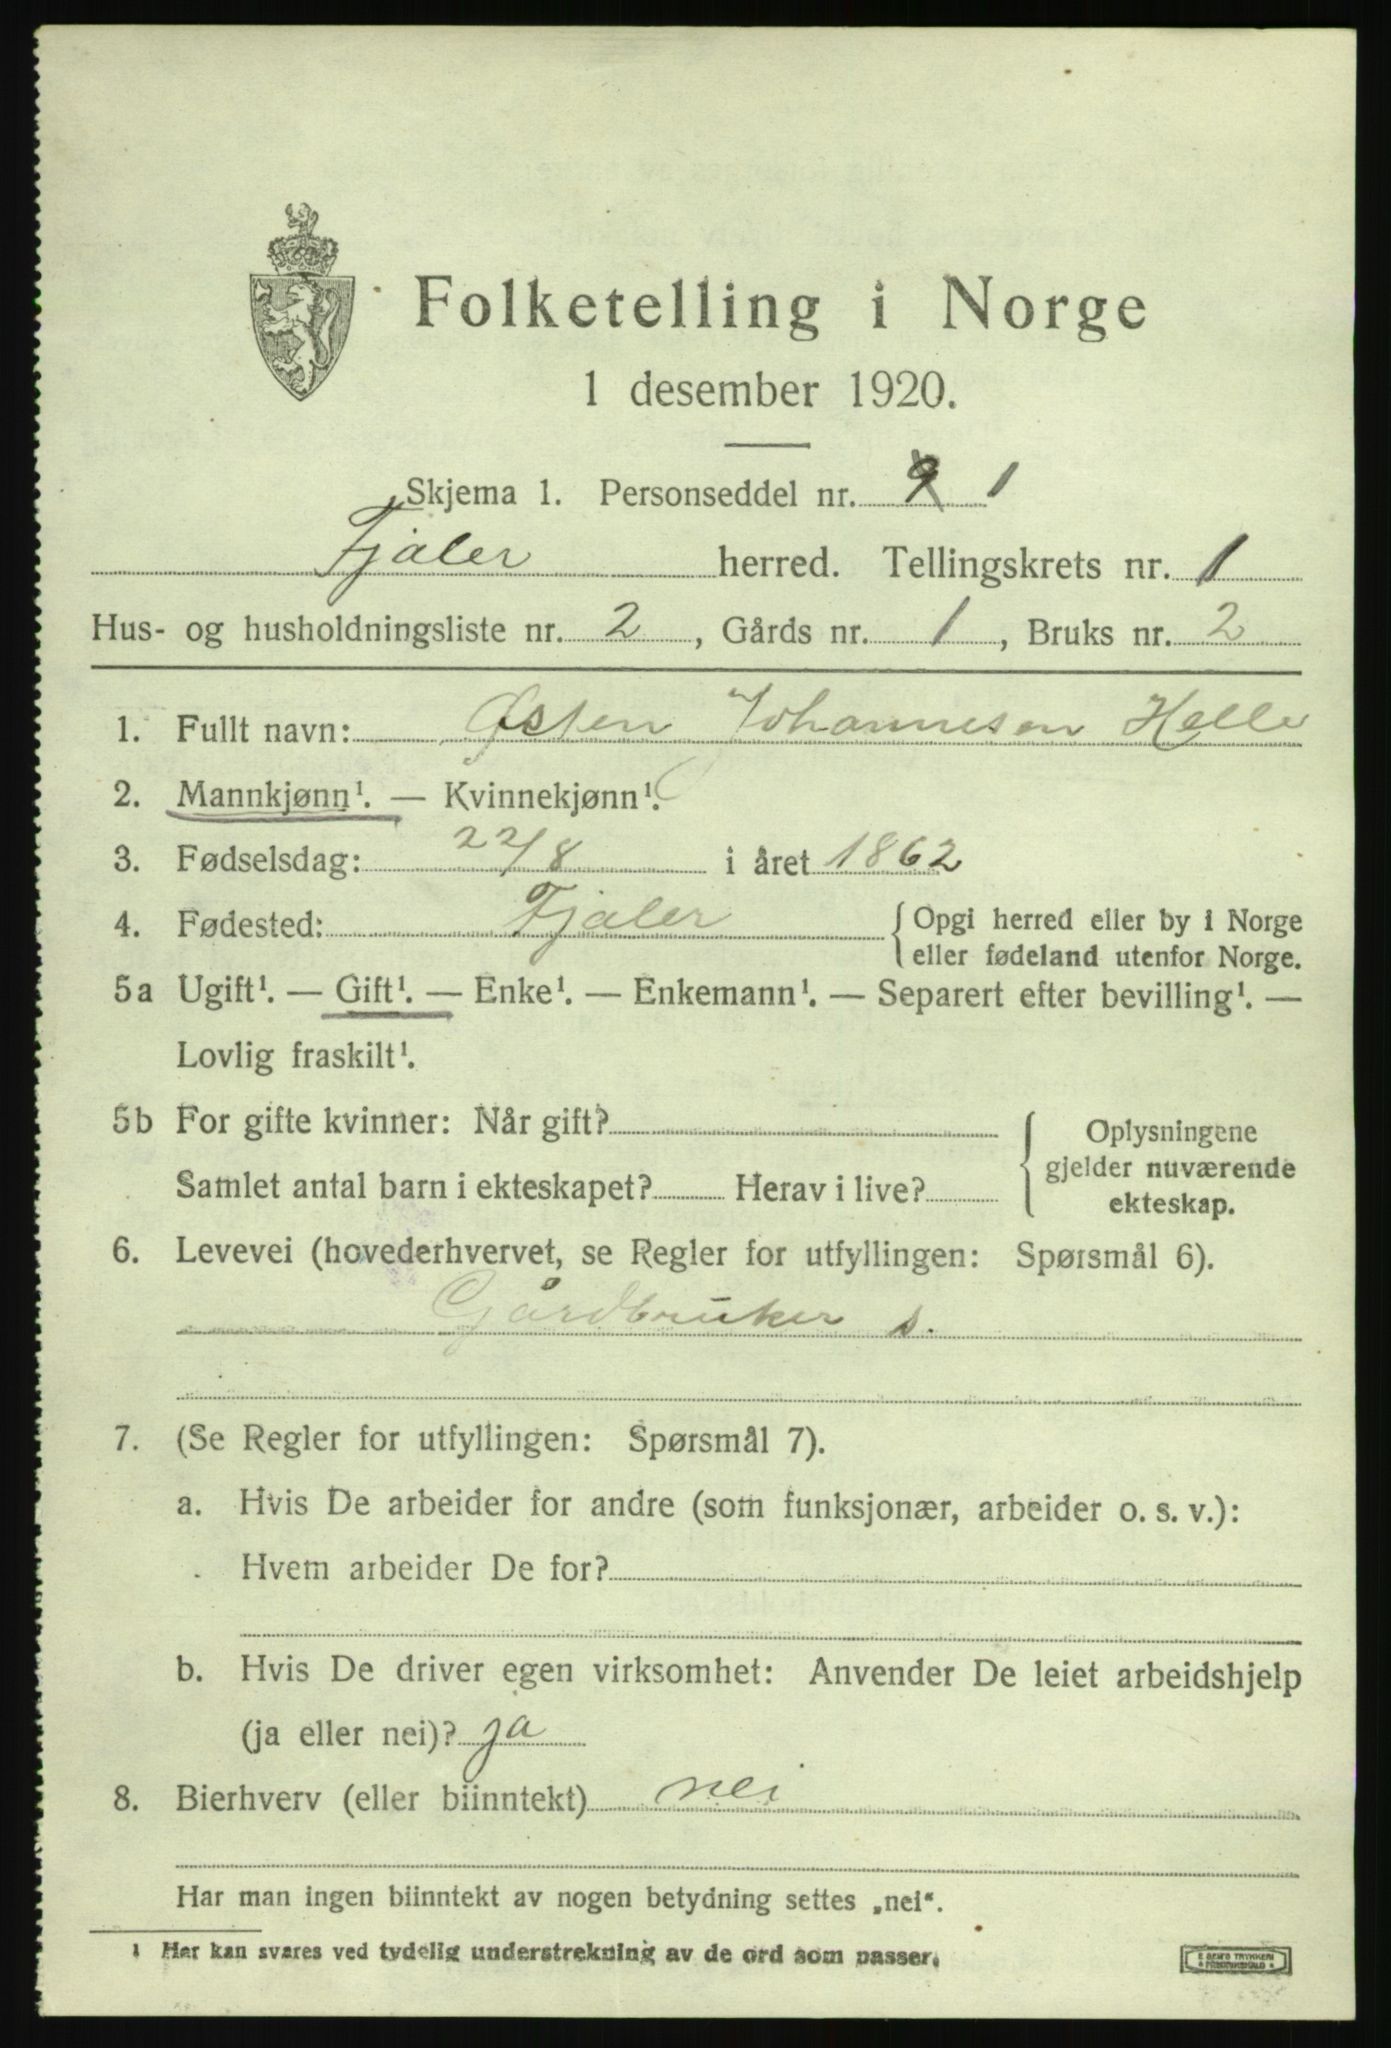 Folketelling i Norge
1 desember 1920.
Skjema 1. Personseddel nr. 9 1
Fjaler herred. Tellingskrets nr. 1
Hus- og husholdningsliste nr. 2, Gårds nr. 1, Bruks nr. 2
1. Fullt navn: Østen Johannesen Helle
2. Mannkjønn¹. — Kvinnekjønn¹.
3. Fødselsdag: 22/8 i året 1862
4. Fødested: Fjaler { Opgi herred eller by i Norge
eller fødeland utenfor Norge.
5a Ugift¹. — Gift¹. — Enke¹. — Enkemann¹. — Separert efter bevilling¹. —
Lovlig fraskilt¹.
5b For gifte kvinner: Når gift?
Samlet antal barn i ekteskapet? Herav i live?
{ Oplysningene
gjelder nuværende
ekteskap.
6. Levevei (hovederhvervet, se Regler for utfyllingen: Spørsmål 6).
Gårdbruker s.
7. (Se Regler for utfyllingen: Spørsmål 7).
a. Hvis De arbeider for andre (som funksjonær, arbeider o. s. v.):
Hvem arbeider De for?
b. Hvis De driver egen virksomhet: Anvender De leiet arbeidshjelp
(ja eller nei)? ja
8. Bierhverv (eller biinntekt) nei
Har man ingen biinntekt av nogen betydning settes „nei“.
1 Her kan svares ved tydelig understrekning av de ord som passer.